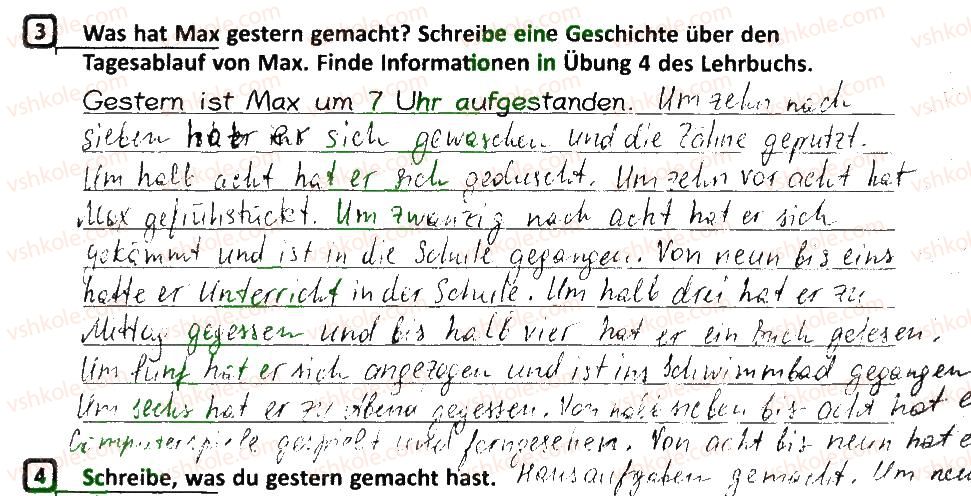 3 Was hat Max gestern gemacht? Schreibe eine Geschichte über den
Tagesablauf von Max. Finde Informationen in Übung 4 des Lehrbuchs.
Gestern ist Max um 7 Uhr aufgestanden. Um zehn nach
sieben hat er sich gewaschen und die Zähne geputzt.
Um halb acht hat er sich geduscht. Um zehn vor acht hat
Max gefrühstückt. Um zwanzig nach acht hat er sich
gekämmt und ist in die Schule gegangen. Von neun bis eins
hatte er Unterricht in der Schule. Um halb drei hat er zu
Mittag gegessen und bis halb vier hat er ein Buch gelesen.
Um fünf hat er sich angezogen und ist ins Schwimmbad gegangen
Um sechs hat er zu Abend gegessen. Von halb sieben bis acht hat e
Computerspiele gespielt und ferngesehen. Von acht bis neun hat e
4 Schreibe, was du gestern gemacht hast. Hausaufgaben gemacht. Um neun